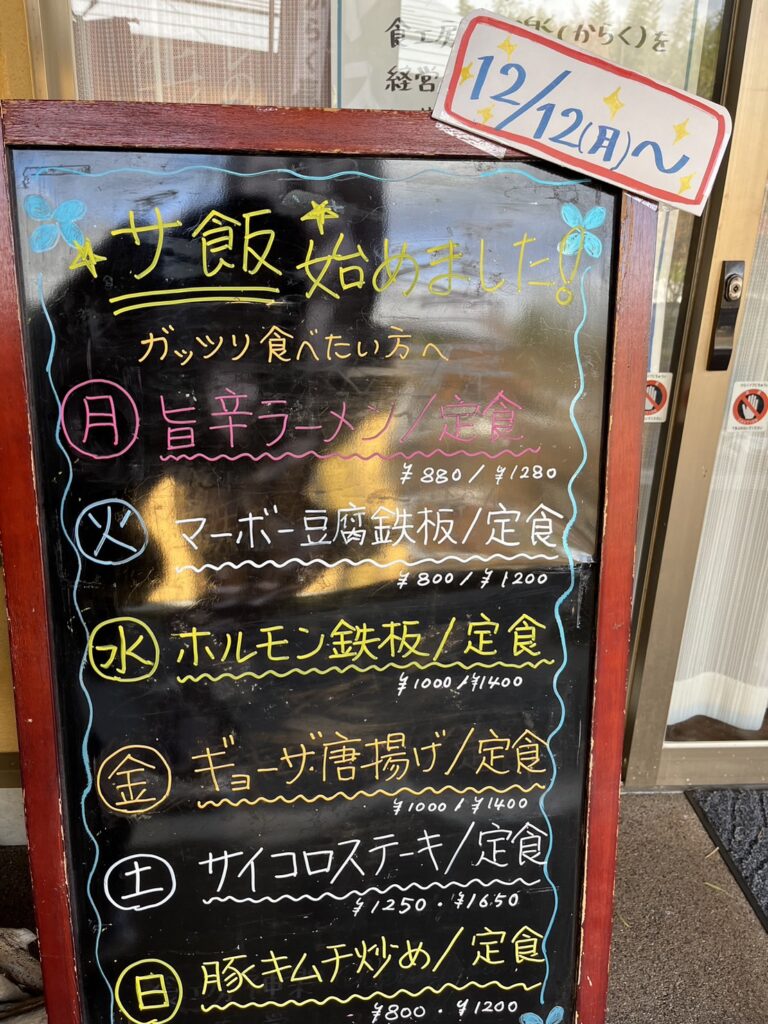 12/12(月)～
サ飯 始めました!
ガッツリ食べたい方へ
月 旨辛ラーメン/定食
¥880/¥1280
火 マーボー豆腐鉄板/定食
¥800/¥1200
水 ホルモン鉄板/定食
¥1000/¥1400
金 ギョーザ唐揚げ/定食
¥1000/¥1400
土 サイコロステーキ/定食
¥1250・¥1650
日 豚キムチ炒め/定食
¥800・¥1200